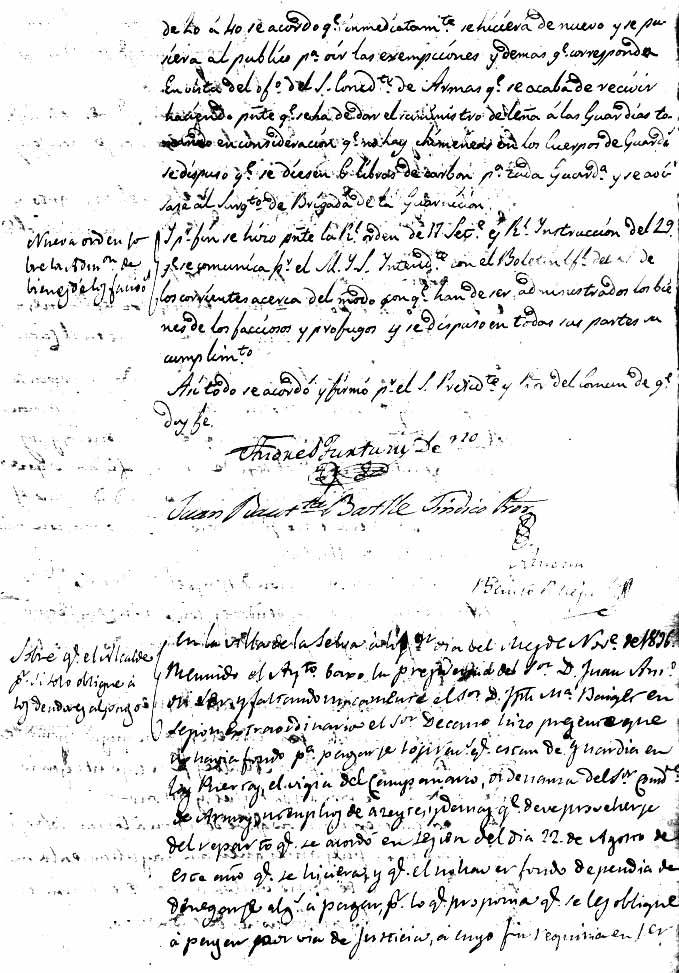 de 20 á 40 se acordó q.e inmediatam.te se hiciera de nuevo y se pu
siera al publico p.a oir las exempciones y demas q.e corresponda
En vista del of.o del S. Com.dte de Armas q.e se acaba de recivir
haciendo p.nte q.e se ha de dar el suministro de leña á las Guardias to
mando en consideración q.e no hay chimeneas en los Cuerpos de Guardia
se dispuso q.e se diesen 6 libras de carbon p.a cada Guard.a y se avi
sase al Sarg.to de Brigada de la Guarnicion.
Nueva orden so
bre la Admin.on de
bienes de los facció.s
Y p.r fin se hizo p.nte la R.l orden de 17 Sep.e y R.l Instrucción del 29
q.e se comunica p.r el M. Y. S. Intend.te con el Boletin Of.l del de
los corrientes acerca del modo con q.e han de ser administrados los bie
nes de los facciosos y profugos y se dispuso en todas sus partes su
cumplim.to
Asi todo se acordó y firmó p.r el S. Presid.te y P.or del comun de q.e
doy fe.
Juan Baut.ta Batlle Sindico P.or
Sobre q.e el S. Alcalde
p.r si solo oblique á
los deudores al pago
En la villa de la Selva á dia del Mes de Nov.e de 1836.
Reunido el Ay.to baxo la presidencia del S.or D. Juan Ant.o
y faltando unicamente el S.or D. Jph M.a en
sesion Extraordinaria el S.or Decano hizo presente que
no havia fondo p.a pagar q.e estan de Guardia en
las Puertas, el vigia del Campanario, ordenanza del S.or Comd.te
de Armas, de azeyte y demas q.e deve proveherse
del reparto q.e se acordó en sesion del dia 22 de Agosto de
este año q.e se hiciera, y q.e el no haver fondo dependia de
denegarse alg.s á pagar, p.r lo q.e proponia q.e se les oblique
á pagar por via de Justicia, á cuyo fin requiria en